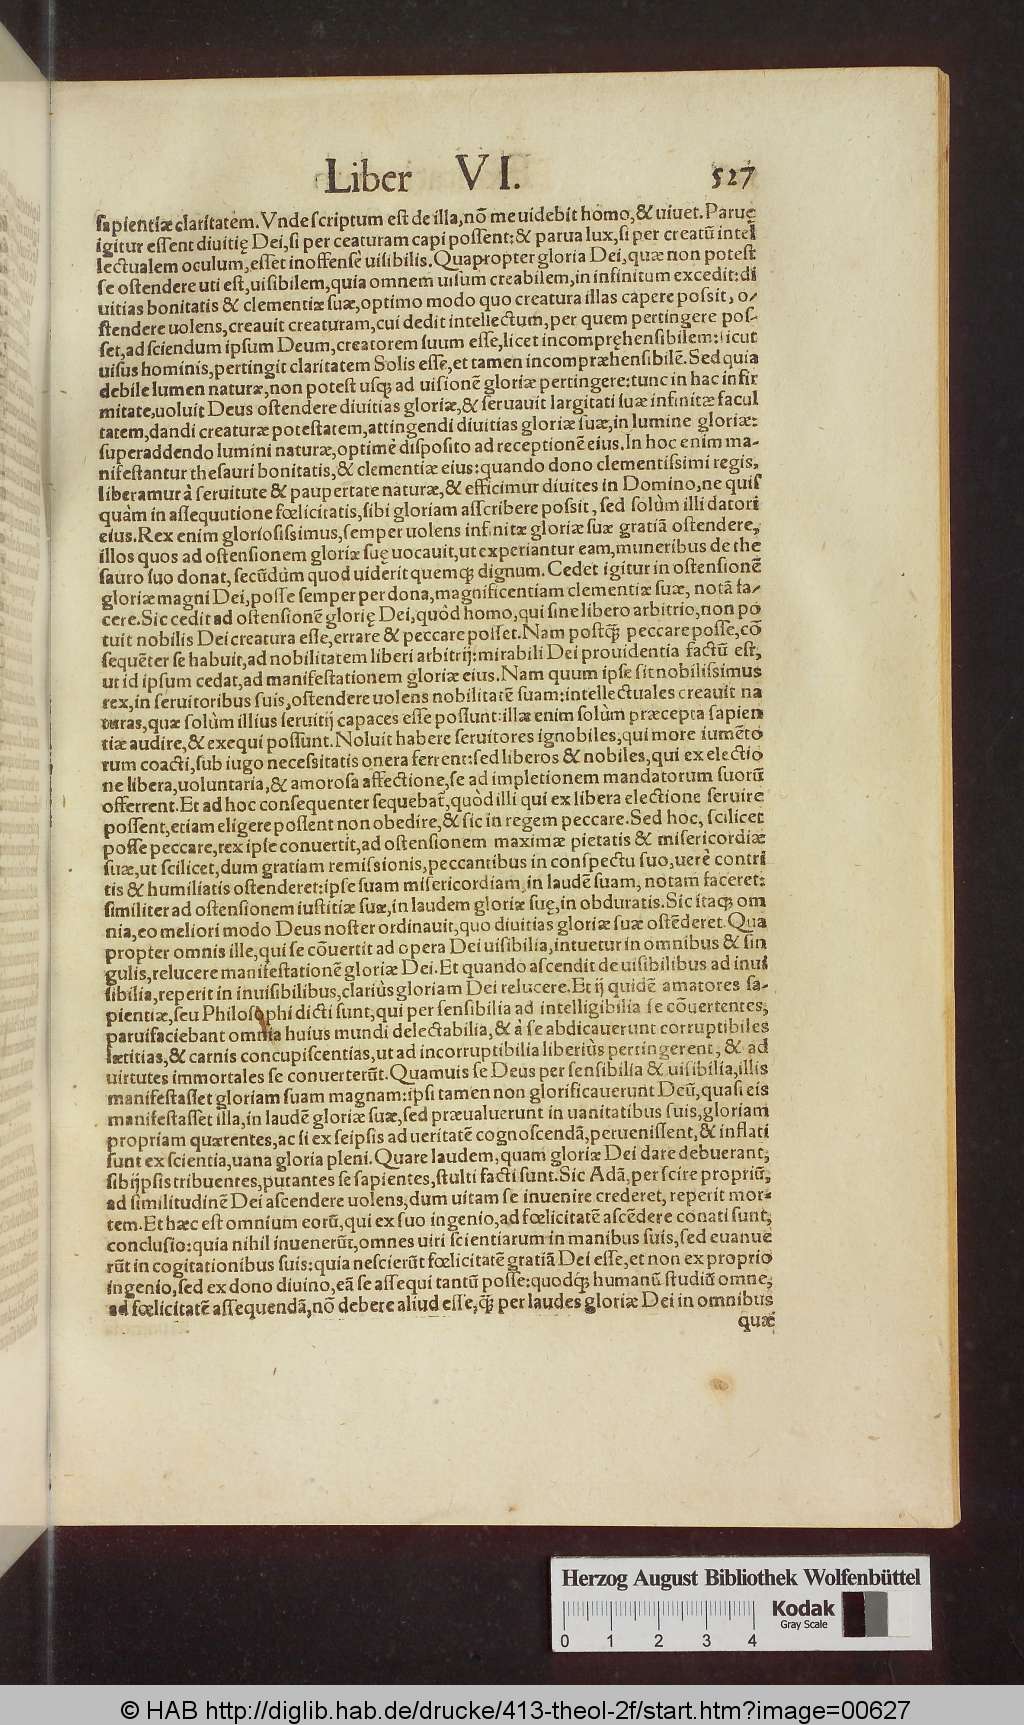 Liber VI. 527
ſapientiæ claritatem. Vnde ſcriptum eſt de illa, nõ me uidebit homo, & uiuet. Paruę
igitur eſſent diuitię Dei, ſi per ceaturam capi poſſent: & parua lux, ſi per creatũ intel
lectualem oculum, eſſet inoffenſè uiſibilis. Quapropter gloria Dei, quæ non poteſt
ſe oſtendere uti eſt, uiſibilem, quia omnem uiſum creabilem, in infinitum excedit: di
uitias bonitatis & clementiæ ſuæ, optimo modo quo creatura illas capere poſsit, o-
ſtendere uolens, creauit creaturam, cui dedit intellectum, per quem pertingere poſ-
ſet, ad ſciendum ipſum Deum, creatorem ſuum eſſe, licet incompręhenſibilem: ſicut
uiſus hominis, pertingit claritatem Solis eſſe, et tamen incompræhenſibilẽ. Sed quia
debile lumen naturæ, non poteſt uſꝗ ad uiſionẽ gloriæ pertingere: tunc in hac infir
mitate, uoluit Deus oſtendere diuitias gloriæ, & ſeruauit largitati ſuæ infinitæ facul
tatem, dandi creaturæ poteſtatem, attingendi diuitias gloriæ ſuæ, in lumine gloriæ:
ſuperaddendo lumini naturæ, optimè diſpoſito ad receptionẽ eius. In hoc enim ma-
nifeſtantur theſauri bonitatis, & clementiæ eius: quando dono clementiſsimi regis,
liberamur à ſeruitute & paupertate naturæ, & efficimur diuites in Domino, ne quiſ
quàm in aſſequutione fœlicitatis, ſibi gloriam aſſcribere poſsit, ſed ſolùm illi datori
eius. Rex enim glorioſiſsimus, ſemper uolens infinitæ gloriæ ſuæ gratiã oſtendere,
illos quos ad oſtenſionem gloriæ ſuę uocauit, ut experiantur eam, muneribus de the
ſauro ſuo donat, ſecũdùm quod uiderit quemꝗ dignum. Cedet igitur in oſtenſionẽ
gloriæ magni Dei, poſſe ſemper per dona, magnificentiam clementiæ ſuæ, notã fa-
cere. Sic cedit ad oſtenſionẽ glorię Dei, quòd homo, qui ſine libero arbitrio, non po
tuit nobilis Dei creatura eſſe, errare & peccare poſſet. Nam poſtꝗ̃ peccare poſſe, cõ
ſequẽter ſe habuit, ad nobilitatem liberi arbitrij: mirabili Dei prouidentia factũ eſt,
ut id ipſum cedat, ad manifeſtationem gloriæ eius. Nam quum ipſe ſit nobiliſsimus
rex, in ſeruitoribus ſuis, oſtendere uolens nobilitatẽ ſuam: intellectuales creauit na
turas, quæ ſolùm illius ſeruitij capaces eſſe poſſunt: illæ enim ſolùm præcepta ſapien
tiæ audire, & exequi poſſunt. Noluit habere ſeruitores ignobiles, qui more iumẽto
rum coacti, ſub iugo neceſsitatis onera ferrent: ſed liberos & nobiles, qui ex electio
ne libera, uoluntaria, & amoroſa affectione, ſe ad impletionem mandatorum ſuorũ
offerrent. Et ad hoc conſequenter ſequebat̃, quòd illi qui ex libera electione ſeruire
poſſent, etiam eligere poſſent non obedire, & ſic in regem peccare. Sed hoc, ſcilicet
poſſe peccare, rex ipſe conuertit, ad oſtenſionem maximæ pietatis & miſericordiæ
ſuæ, ut ſcilicet, dum gratiam remiſsionis, peccantibus in conſpectu ſuo, uerè contri
tis & humiliatis oſtenderet: ipſe ſuam miſericordiam in laudẽ ſuam, notam faceret:
ſimiliter ad oſtenſionem iuſtitiæ ſuæ, in laudem gloriæ ſuę, in obduratis. Sic itaꝗ om
nia, eo meliori modo Deus noſter ordinauit, quo diuitias gloriæ ſuæ oſtẽderet. Qua
propter omnis ille, qui ſe cõuertit ad opera Dei uiſibilia, intuetur in omnibus & ſin
gulis, relucere manifeſtationẽ gloriæ Dei. Et quando aſcendit de uiſibilibus ad inui
ſibilia, reperit in inuiſibilibus, clariùs gloriam Dei relucere. Et ij quidẽ amatores ſa-
pientiæ, ſeu Philoſophi dicti ſunt, qui per ſenſibilia ad intelligibilia ſe cõuertentes,
paruifaciebant omnia huius mundi delectabilia, & à ſe abdicauerunt corruptibiles
lætitias, & carnis concupiſcentias, ut ad incorruptibilia liberiùs pertingerent, & ad
uirtutes immortales ſe conuerterũt. Quamuis ſe Deus per ſenſibilia & uiſibilia, illis
manifeſtaſſet gloriam ſuam magnam: ipſi tamen non glorificauerunt Deũ, quaſi eis
manifeſtaſſet illa, in laudẽ gloriæ ſuæ, ſed præualuerunt in uanitatibus ſuis, gloriam
propriam quærentes, ac ſi ex ſeipſis ad ueritatẽ cognoſcendã, perueniſſent, & inflati
ſunt ex ſcientia, uana gloria pleni. Quare laudem, quam gloriæ Dei dare debuerant,
ſibijpſis tribuentes, putantes ſe ſapientes, ſtulti facti ſunt. Sic Adã, per ſcire propriũ,
ad ſimilitudinẽ Dei aſcendere uolens, dum uitam ſe inuenire crederet, reperit mor-
tem. Et hæc eſt omnium eorũ, qui ex ſuo ingenio, ad fœlicitatẽ aſcẽdere conati ſunt,
concluſio: quia nihil inuenerũt, omnes uiri ſcientiarum in manibus ſuis, ſed euanue
rũt in cogitationibus ſuis: quia neſcierũt fœlicitatẽ gratiã Dei eſſe, et non ex proprio
ingenio, ſed ex dono diuino, eã ſe aſſequi tantũ poſſe: quodꝗ humanũ ſtudiũ omne,
ad fœlicitatẽ aſſequendã, nõ debere aliud eſſe, ꝗ̃ per laudes gloriæ Dei in omnibus
quæ
Herzog August Bibliothek Wolfenbüttel
Kodak
Gray Scale
0 1 2 3 4
© HAB http://diglib.hab.de/drucke/413-theol-2f/start.htm?image=00627